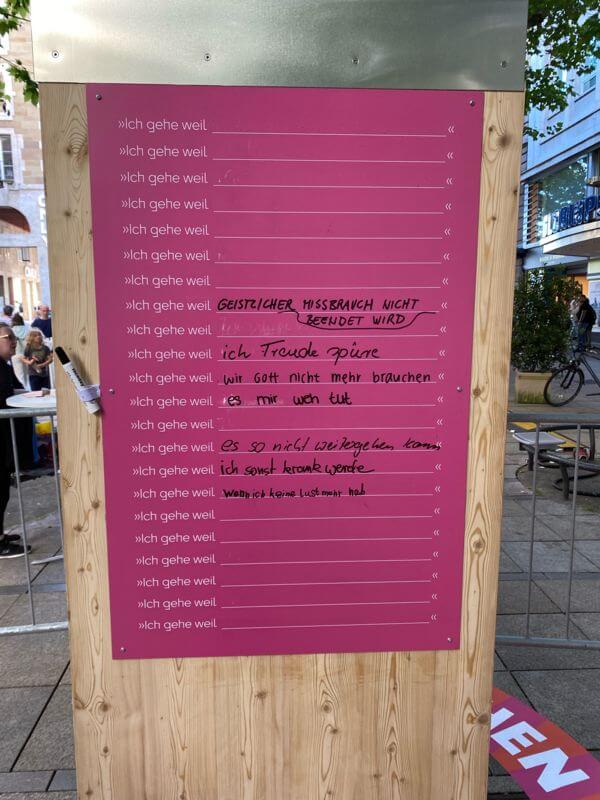 »Ich gehe weil «
»Ich gehe weil «
»Ich gehe weil «
»Ich gehe weil «
»Ich gehe weil «
»Ich gehe weil «
»Ich gehe weil «
»Ich gehe weil GEISTLICHER MISSBRAUCH NICHT «
»Ich gehe weil BEENDET WIRD «
»Ich gehe weil ich Freude spüre «
»Ich gehe weil wir Gott nicht mehr brauchen «
»Ich gehe weil es mir weh tut «
»Ich gehe weil «
»Ich gehe weil es so nicht weitergehen kann «
»Ich gehe weil ich sonst krank werde «
»Ich gehe weil wenn ich keine lust mehr hab «
»Ich gehe weil «
»Ich gehe weil «
»Ich gehe weil «
»Ich gehe weil «
»Ich gehe weil «
»Ich gehe weil «